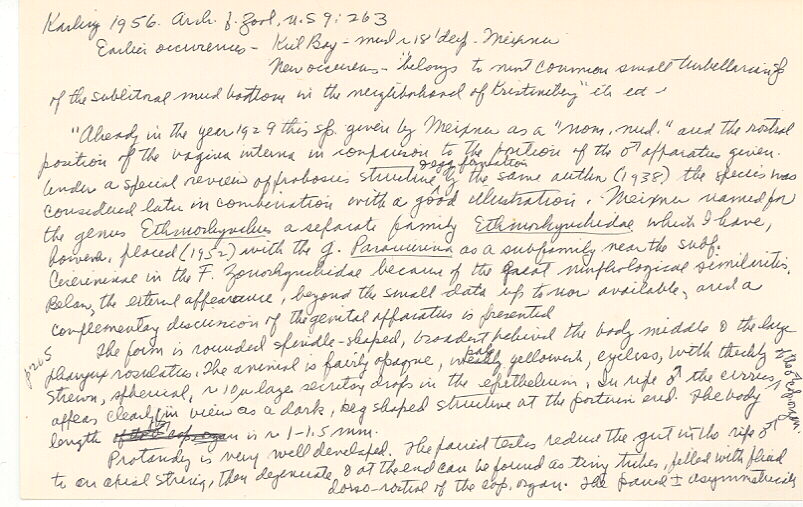 Karling 1956. Ark. f. Zool, N.S 9: 263
Earlier occurrences - Kiel Bay - mud ~ 18' deep - Meixner
New occurrens - "belongs to most common small turbellarians
of the sublitoral mud bottom in the neighborhood of Kristineberg"
"Already in the year 1929 this sp. given by Meixner as a "nom. nud." and the rostral
position of the vagina interna in comparison to the position of the ♂ apparatus given.
Under a special review of proboscis structure by the same author (1938) the species was
considered late in combination with a good illustration. Meixner named for
the genus Ethmorhynchus a separate family Ethmorhynchidae which I have,
however, placed (1952) with the g. Paracicerina as a subfamily near the subf.
Cicerininae in the F. Zonorhynchidae because of the great morphological similarities.
Below, the external appearance, beyond the small data up to now available, and a
complementary discussion of the genital apparatus is presented
p 265
The form is rounded spindle-shaped, broadest behind the body middle & the large
pharynx rosulatus. The animal is fairly opaque, pale yellowish, eyeless, with thickly
strewn, spherical, ~ 10µ large secretory drops in the epithelium. In ripe ♂ the cirrus
of the ♂ cop. organ
appears clearly in view as a dark, peg shaped structure at the posterior end. The body
length is ~ 1-1.5 mm.
Protandry is very well developed. The paired testes reduce the gut in the ripe ♂
to an axial string, then degenerate & at the end can be found as tiny tubes, filled with fluid
dorso-rostral of the cop. organ. The paired ± asymmetrically